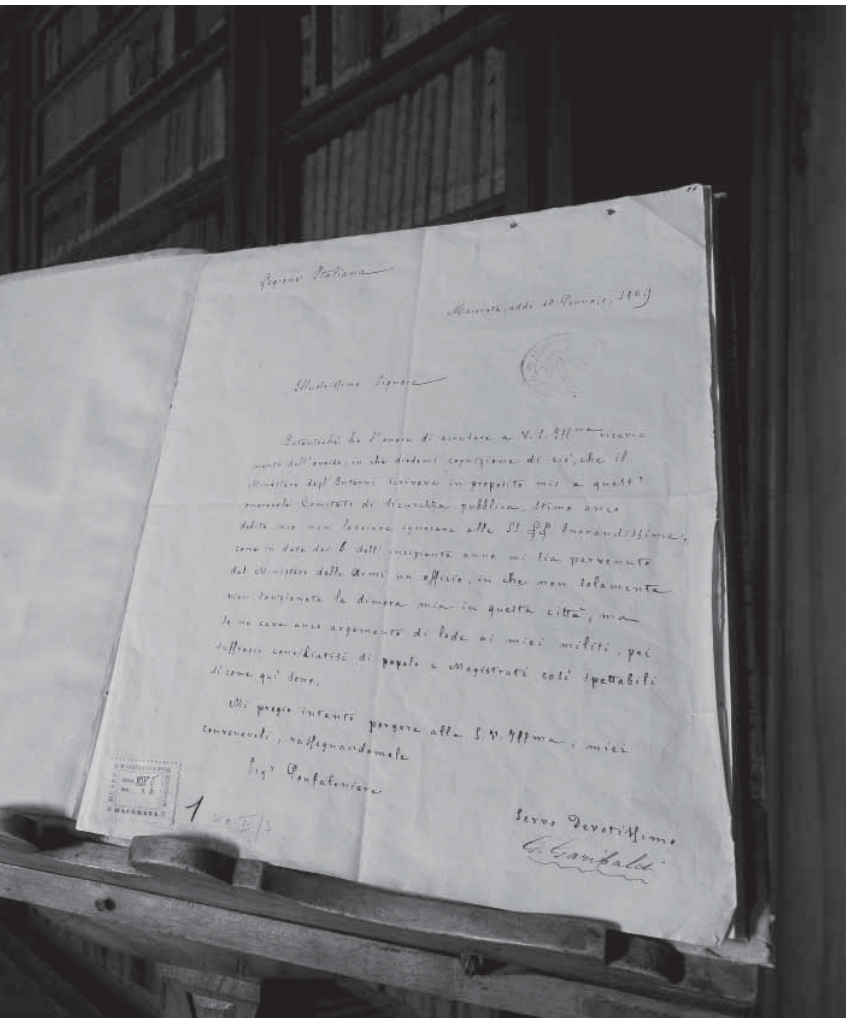 Legione Italiana
Macerata, addì 10 Gennajo, 1849
Illustrissimo Signore
Intantochè ho l'onore di accusare a V. S. Illma ricevi=
mento dell'avviso, in che diedemi cognizione di ciò, che il
Ministero degl'Interni scriveva in proposito mio a quell'
onorevole Comitato di Sicurezza pubblica, stimo anco
debito mio non lasciare ignorare alle SS. LL. Onorandissime,
come in data dei 6 dell'incipiente anno mi sia pervenuto
dal Ministero delle Armi un officio, in che non solamente
vien sanzionata la dimora mia in questa città, ma
se ne cava anco argomento di lode ai miei militi, pei
suffragi conciliatisi di popolo e Magistrati così spettabili
sicome qui sono.
Mi pregio intanto porgere alla S. V. Illma, i miei
convenevoli, rassegnandomele
Sigr Gonfaloniere
Servo Devotissimo
G. Garibaldi
MACERATA
1